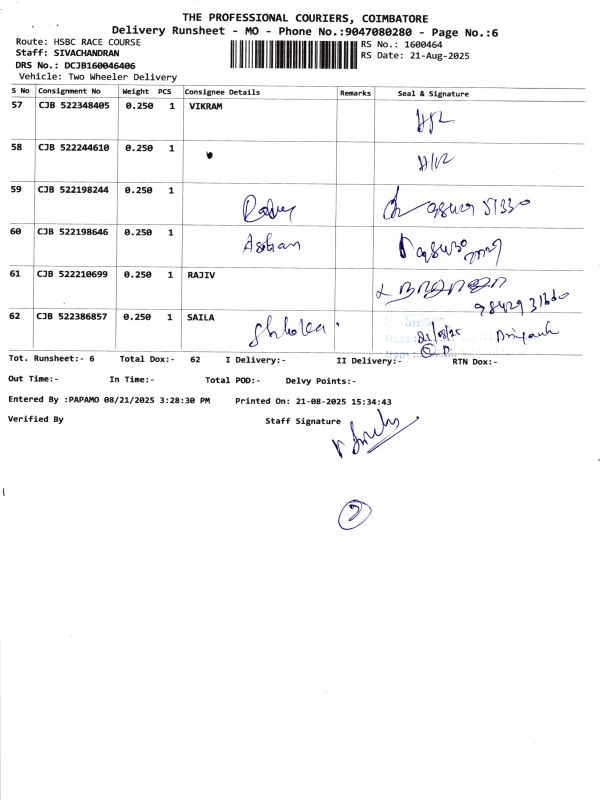 THE PROFESSIONAL COURIERS, COIMBATORE
Delivery Runsheet - MO - Phone No.:9047080280 - Page No.:6
Route: HSBC RACE COURSE
RS No.: 1600464
Staff: SIVACHANDRAN
RS Date: 21-Aug-2025
DRS No.: DCJB160046406
Vehicle: Two Wheeler Delivery
S No Consignment No Weight PCS Consignee Details Remarks Seal & Signature
57 CJB 522348405 0.250 1 VIKRAM
58 CJB 522244610 0.250 1
59 CJB 522198244 0.250 1
60 CJB 522198646 0.250 1
61 CJB 522210699 0.250 1 RAJIV
62 CJB 522386857 0.250 1 SAILA
21/08/25
Tot. Runsheet:- 6 Total Dox:- 62 I Delivery:- II Delivery:- RTN Dox:-
Out Time:- In Time:- Total POD:- Delvy Points:-
Entered By :PAPAMO 08/21/2025 3:28:30 PM Printed On: 21-08-2025 15:34:43
Verified By Staff Signature